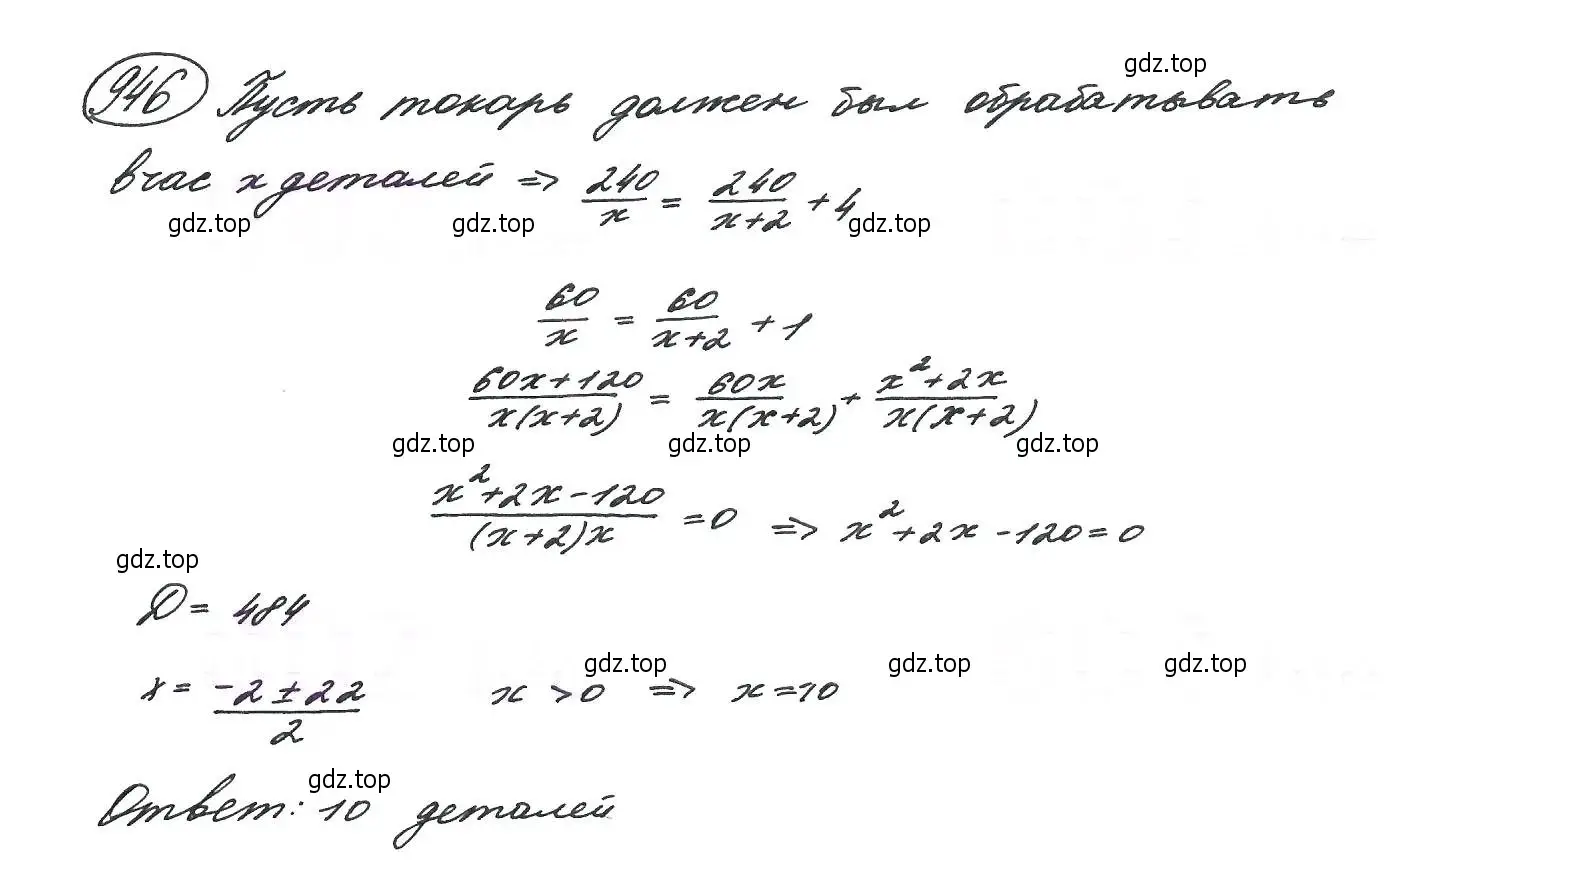 gdz.top
946 Пусть токарь должен был обрабатывать
в час x деталей => 240/x = 240/(x+2) + 4
gdz.top gdz.top gdz.top
60/x = 60/(x+2) + 1
(60x+120)/(x(x+2)) = 60x/(x(x+2)) + (x²+2x)/(x(x+2))
gdz.top gdz.top gdz.top
(x²+2x-120)/((x+2)x) = 0 => x²+2x-120=0
gdz.top
D = 484
gdz.top gdz.top gdz.top
x = (-2±22)/2 x > 0 => x=10
gdz.top
Ответ: 10 деталей